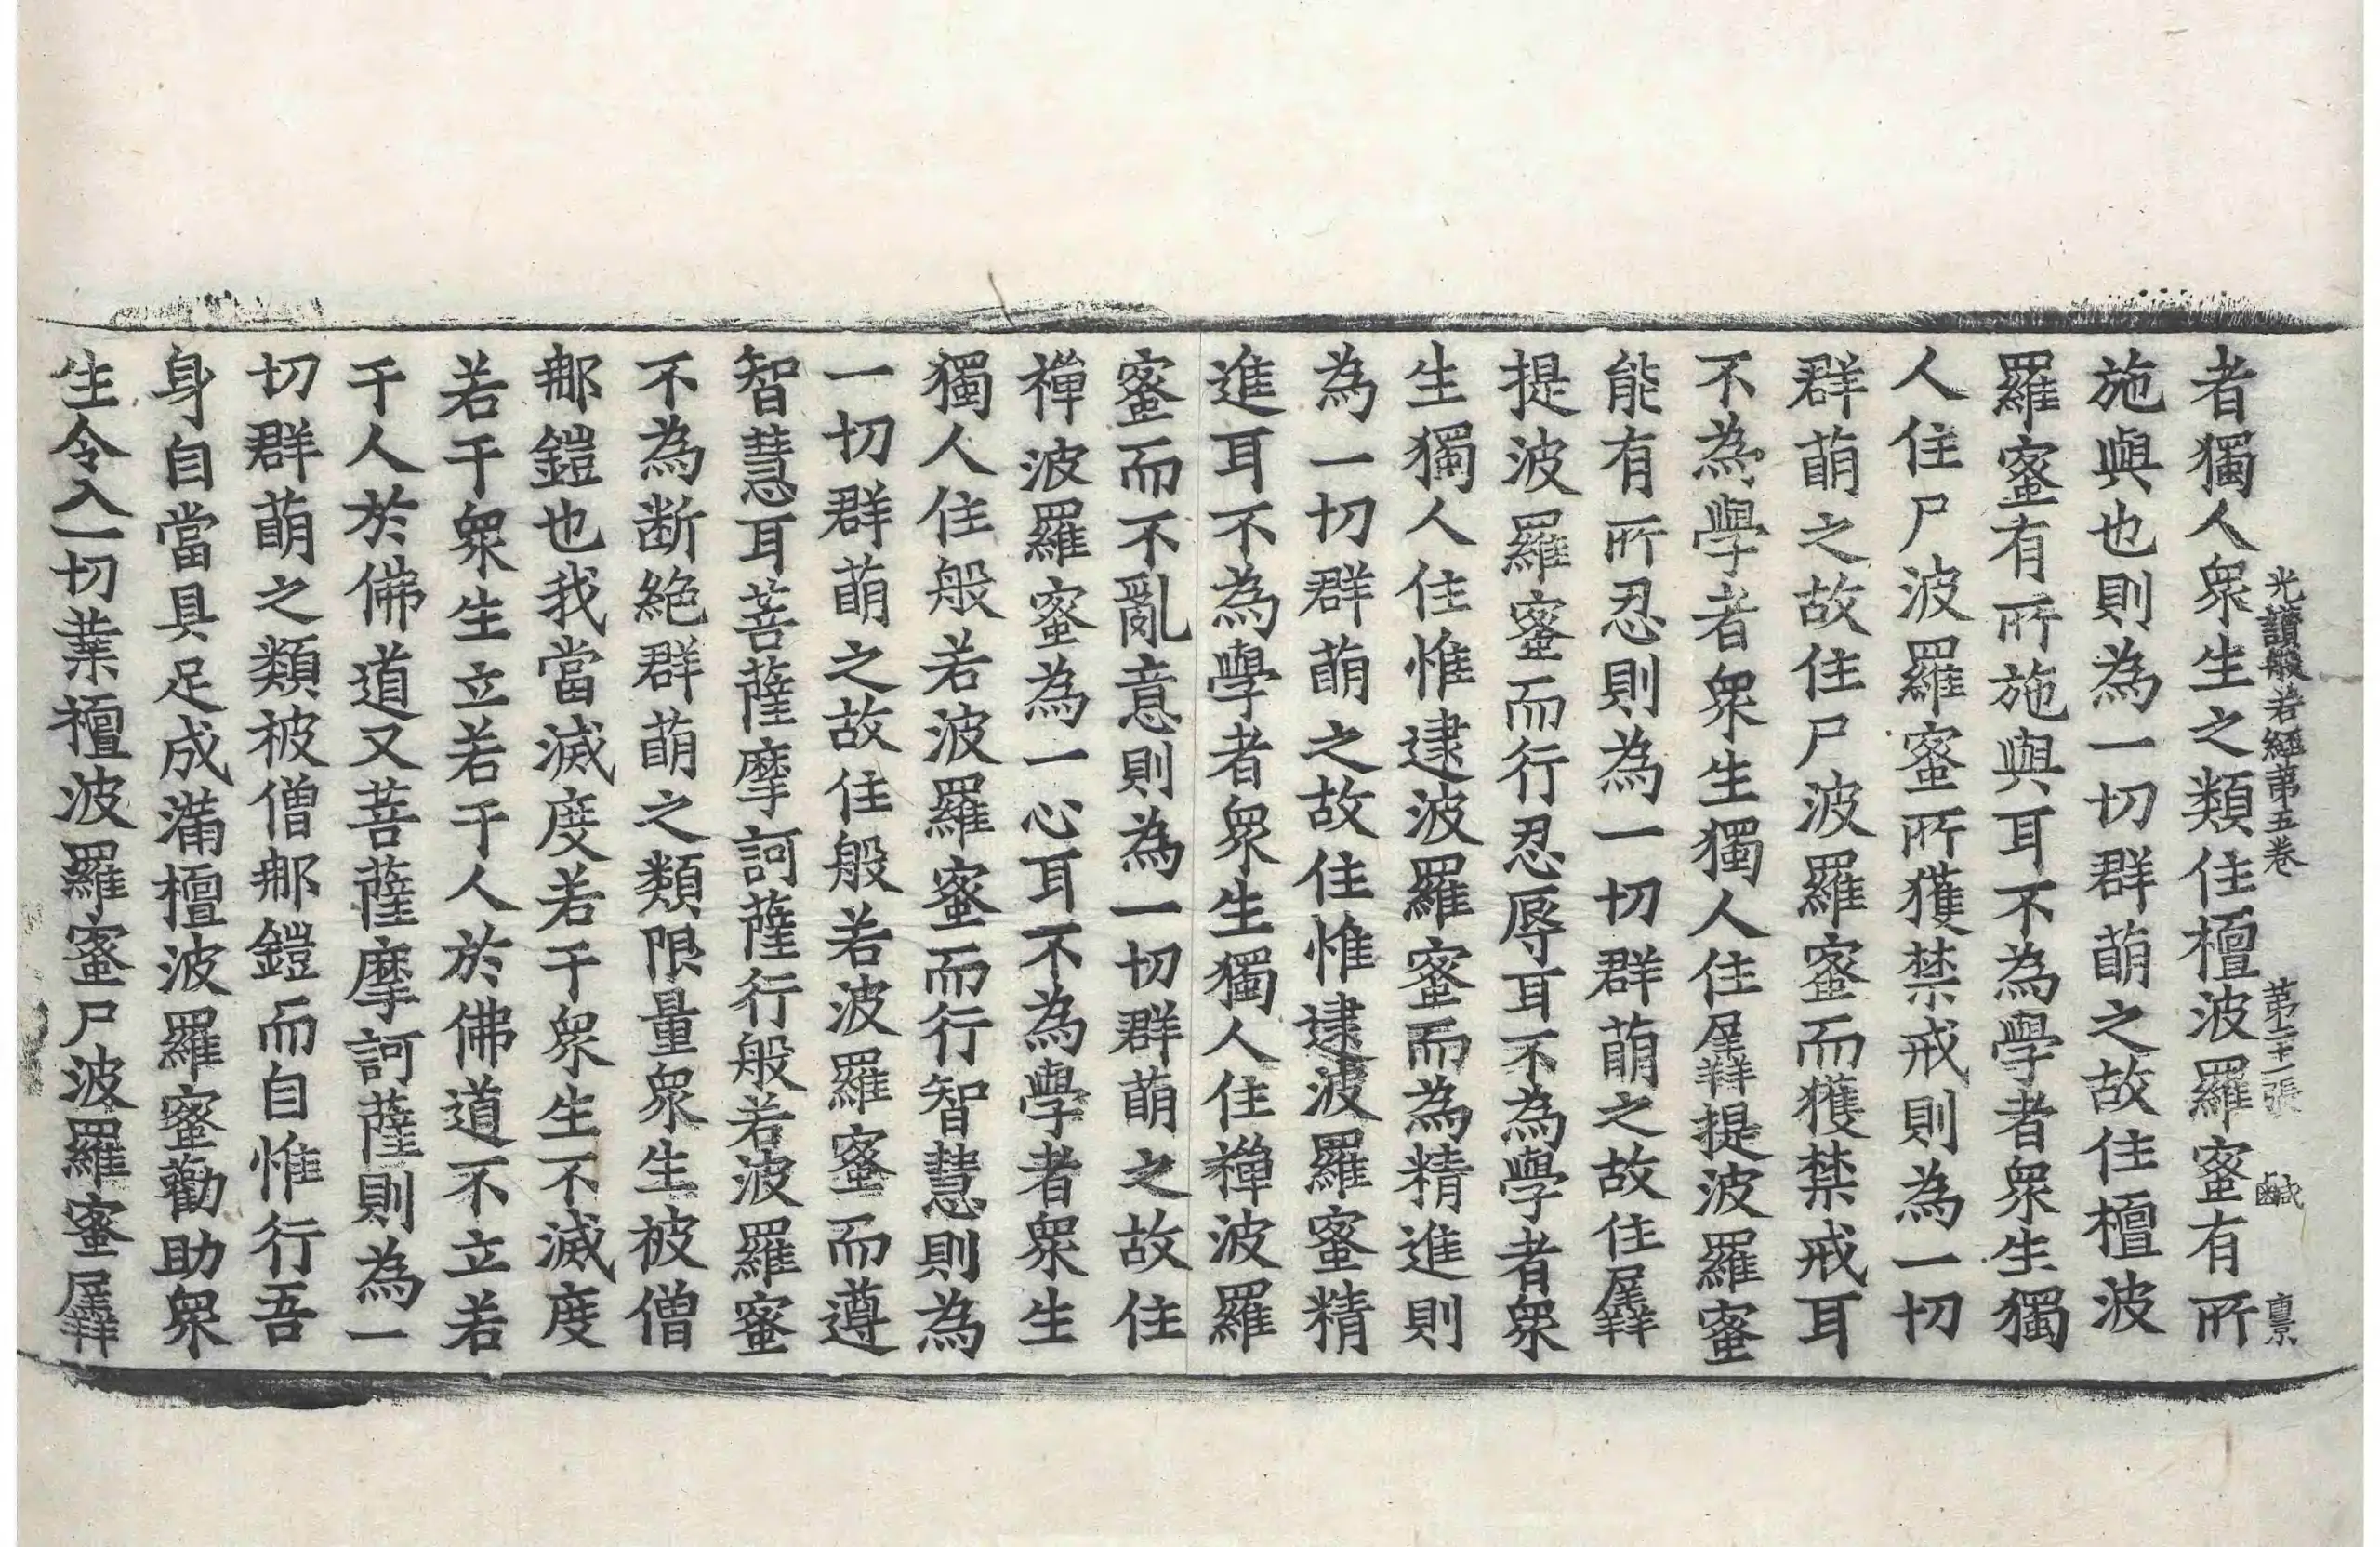 光讃般若經第五卷 第二十一張 鹹
者獨人衆生之類住檀波羅蜜有所
施與也則為一切群萌之故住檀波
羅蜜有所施與耳不為學者衆生獨
人住尸波羅蜜所獲禁戒則為一切
群萌之故住尸波羅蜜而獲禁戒耳
不為學者衆生獨人住羼提波羅蜜
能有所忍則為一切群萌之故住羼
提波羅蜜而行忍辱耳不為學者衆
生獨人住惟逮波羅蜜而為精進則
為一切群萌之故住惟逮波羅蜜精
進耳不為學者衆生獨人住禪波羅
蜜而不亂意則為一切群萌之故住
禪波羅蜜為一心耳不為學者衆生
獨人住般若波羅蜜而行智慧則為
一切群萌之故住般若波羅蜜而遵
智慧耳菩薩摩訶薩行般若波羅蜜
不為断絶群萌之類限量衆生被僧
那鎧也我當滅度若干衆生不滅度
若干衆生立若干人於佛道不立若
干人於佛道又菩薩摩訶薩則為一
切群萌之類被僧那鎧而自惟行吾
身自當具足成滿檀波羅蜜勸助衆
生令入一切業檀波羅蜜尸波羅蜜羼